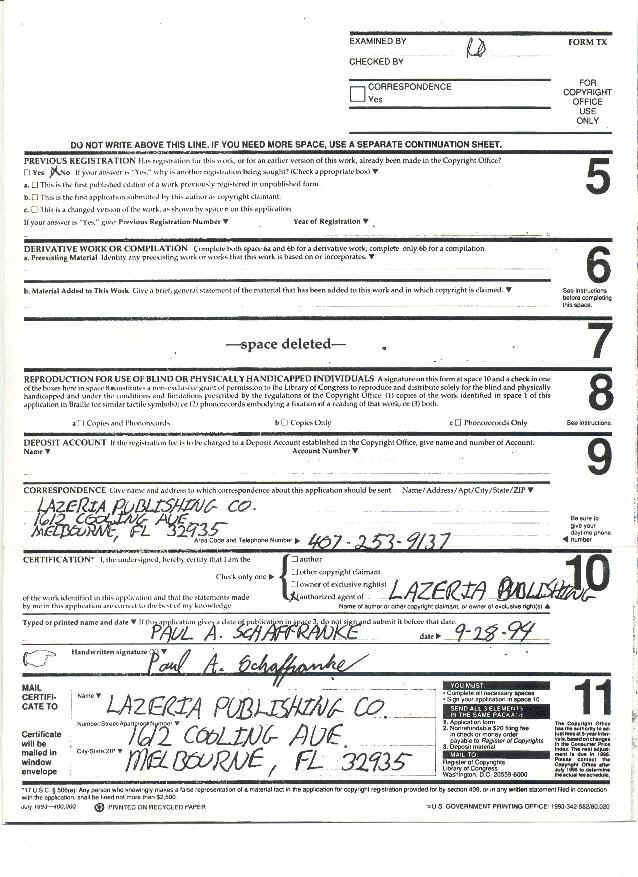 EXAMINED BY
FORM TX
CHECKED BY
CORRESPONDENCE
Yes
FOR
COPYRIGHT
OFFICE
USE
ONLY
DO NOT WRITE ABOVE THIS LINE. IF YOU NEED MORE SPACE, USE A SEPARATE CONTINUATION SHEET.
PREVIOUS REGISTRATION Has registration for this work, or for an earlier version of this work, already been made in the Copyright Office?
☐ Yes ☒ No If your answer is "Yes," why is another registration being sought? (Check appropriate box) ▼
a. ☐ This is the first published edition of a work previously registered in unpublished form.
b. ☐ This is the first application submitted by this author as copyright claimant.
c. ☐ This is a changed version of the work, as shown by space 6 on this application.
If your answer is "Yes," give Previous Registration Number ▼ Year of Registration ▼
5
DERIVATIVE WORK OR COMPILATION Complete both space 6a and 6b for a derivative work; complete only 6b for a compilation.
a. Preexisting Material Identify any preexisting work or works that this work is based on or incorporates. ▼
6
b. Material Added to This Work Give a brief, general statement of the material that has been added to this work and in which copyright is claimed. ▼
See instructions
before completing
this space.
—space deleted—
7
REPRODUCTION FOR USE OF BLIND OR PHYSICALLY HANDICAPPED INDIVIDUALS A signature on this form at space 10 and a check in one
of the boxes here in space 8 constitutes a non-exclusive grant of permission to the Library of Congress to reproduce and distribute solely for the blind and physically
handicapped and under the conditions and limitations prescribed by the regulations of the Copyright Office: (1) copies of the work identified in space 1 of this
application in Braille (or similar tactile symbols); or (2) phonorecords embodying a fixation of a reading of that work; or (3) both.
a ☐ Copies and Phonorecords b ☐ Copies Only c ☐ Phonorecords Only
8
See instructions.
DEPOSIT ACCOUNT If the registration fee is to be charged to a Deposit Account established in the Copyright Office, give name and number of Account.
Name ▼ Account Number ▼
9
CORRESPONDENCE Give name and address to which correspondence about this application should be sent. Name/Address/Apt/City/State/ZIP ▼
LAZERIA PUBLISHING CO.
1612 COOLING AVE
MELBOURNE, FL 32935
Area Code and Telephone Number ▶ 407-253-9137
Be sure to
give your
daytime phone
◀ number
CERTIFICATION* I, the undersigned, hereby certify that I am the
Check only one ▶
☐ author
☐ other copyright claimant
☐ owner of exclusive right(s)
☒ authorized agent of LAZERIA PUBLISHING
Name of author or other copyright claimant, or owner of exclusive right(s) ▲
of the work identified in this application and that the statements made
by me in this application are correct to the best of my knowledge
10
Typed or printed name and date ▼ If this application gives a date of publication in space 3, do not sign and submit it before that date.
PAUL A. SCHAFFRANKE date ▶ 9-28-94
Handwritten signature (X) ▼
Paul A. Schaffranke
MAIL
CERTIFI-
CATE TO
Certificate
will be
mailed in
window
envelope
Name ▼
LAZERIA PUBLISHING CO.
Number/Street/Apartment Number ▼
1612 COOLING AVE
City/State/ZIP ▼
MELBOURNE, FL 32935
YOU MUST:
• Complete all necessary spaces
• Sign your application in space 10
SEND ALL 3 ELEMENTS
IN THE SAME PACKAGE:
1. Application form
2. Nonrefundable $20 filing fee
in check or money order
payable to Register of Copyrights
3. Deposit material
MAIL TO:
Register of Copyrights
Library of Congress
Washington, D.C. 20559-6000
11
The Copyright Office
has the authority to ad-
just fees at 5-year inter-
vals, based on changes
in the Consumer Price
Index. The next adjust-
ment is due in 1996.
Please contact the
Copyright Office after
July 1995 to determine
the actual fee schedule.
*17 U.S.C. § 506(e): Any person who knowingly makes a false representation of a material fact in the application for copyright registration provided for by section 409, or in any written statement filed in connection
with the application, shall be fined not more than $2,500.
July 1993—400,000 PRINTED ON RECYCLED PAPER ☆U.S. GOVERNMENT PRINTING OFFICE: 1993-342-582/80,020